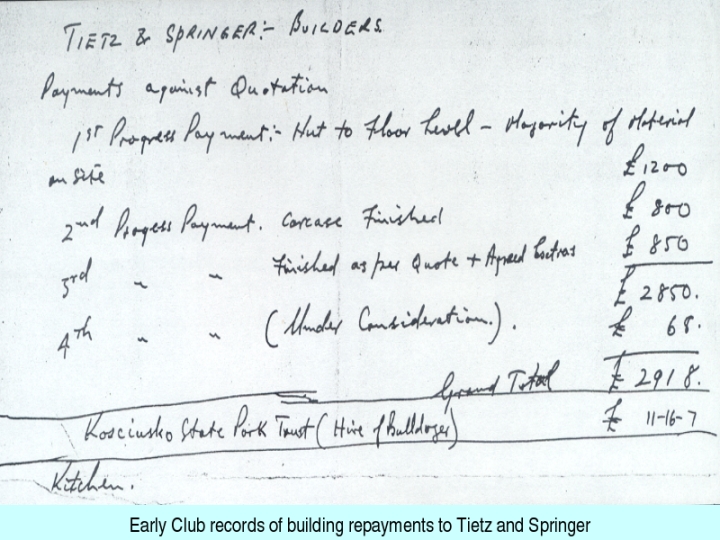 TIETZ & SPRINGER:- BUILDERS.
Payments against Quotation
1st Progress Payment:- Hut to Floor Level - Majority of Material
on site £1200
2nd Progess Payment. Carcase Finished £ 800
3rd " " Finished as per Quote + Agreed Extras £ 850
£ 2850.
4th " " (Under Consideration.). £ 68.
Grand Total £ 2918.
Kosciusko State Park Trust (Hire of Bulldozer) £ 11-16-7
Kitchen.
Early Club records of building repayments to Tietz and Springer